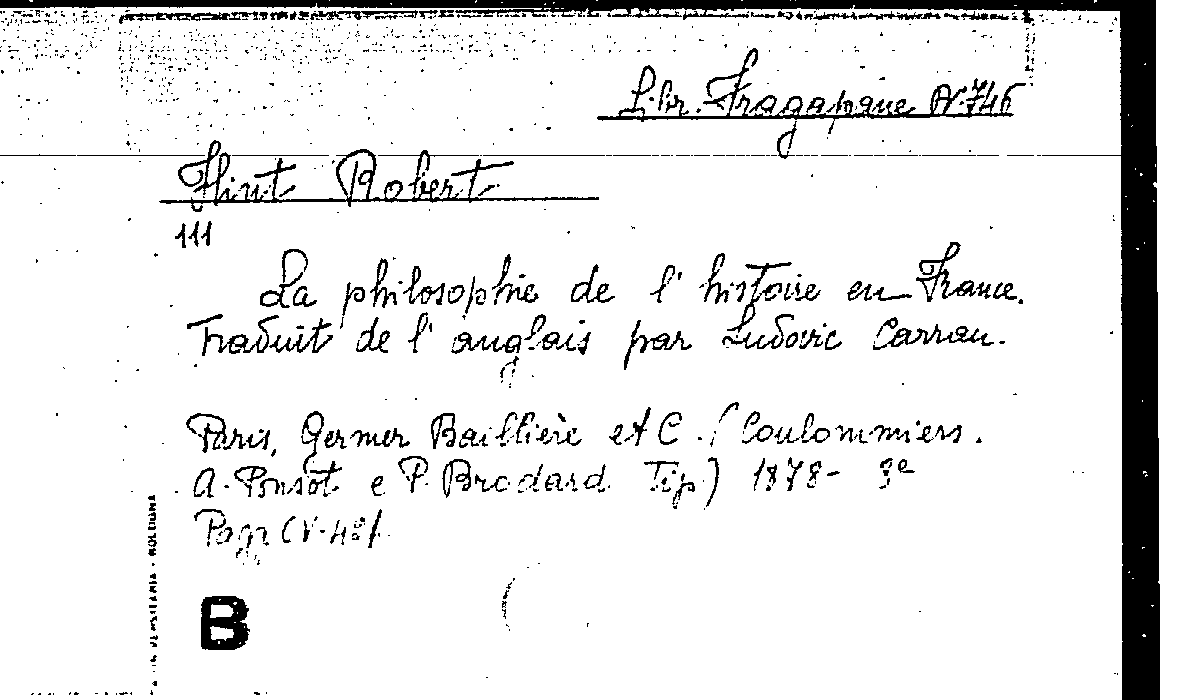 Libr. Fragapane N. 746
Flint Robert
111
La philosophie de l' histoire en France.
Traduit de l' anglais par Ludovic Carrau.
Paris, Germer Baillière et C. (Coulommiers.
A. Ponsot e P. Brodard Tip) 1878 - 8e
Pagr (V-48)
B
BOLOGNA